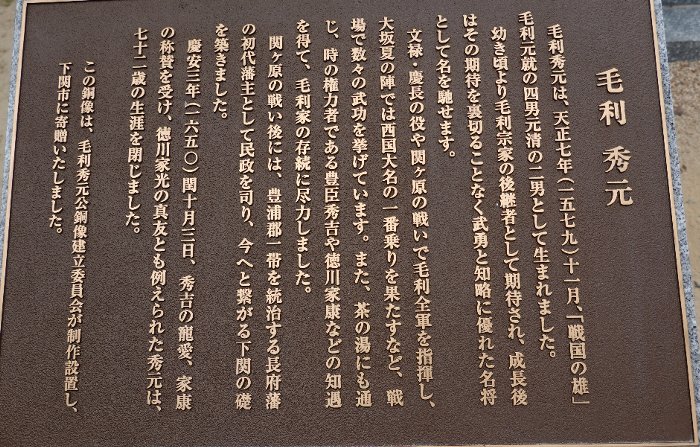 毛利 秀元
毛利秀元は、天正七年（一五七九）十一月、「戦国の雄」
毛利元就の四男元清の二男として生まれました。
幼き頃より毛利宗家の後継者として期待され、成長後
はその期待を裏切ることなく武勇と知略に優れた名将
として名を馳せます。
文禄・慶長の役や関ヶ原の戦いで毛利全軍を指揮し、
大坂夏の陣では西国大名の一番乗りを果たすなど、戦
場で数々の武功を挙げています。また、茶の湯にも通
じ、時の権力者である豊臣秀吉や徳川家康などの知遇
を得て、毛利家の存続に尽力しました。
関ヶ原の戦い後には、豊浦郡一帯を統治する長府藩
の初代藩主として民政を司り、今へと繋がる下関の礎
を築きました。
慶安三年（一六五〇）閏十月三日、秀吉の寵愛、家康
の称賛を受け、徳川家光の真友とも例えられた秀元は、
七十二歳の生涯を閉じました。
この銅像は、毛利秀元公銅像建立委員会が制作設置し、
下関市に寄贈いたしました。